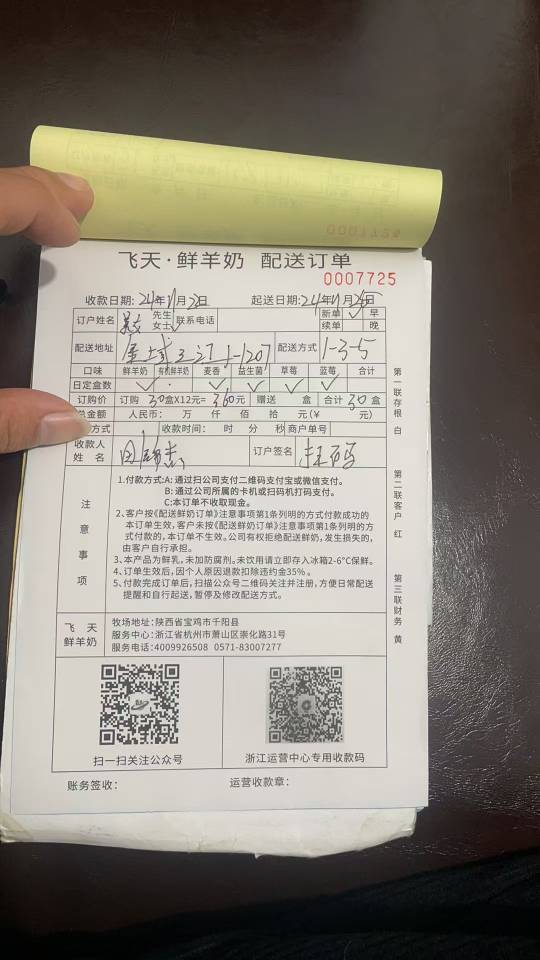 0007724
飞天·鲜羊奶 配送订单
0007725
收款日期: 24年11月23日 起送日期: 24年11月25日
订户姓名 先生 女士 联系电话 新单 续单 早 晚
配送地址 3-27 1-1207 配送方式 1-3-5
口味 鲜羊奶 有机鲜羊奶 麦香 益生菌 草莓 蓝莓 合计
日定盒数
订购价 订购 30盒X12元= 360元 赠送 盒 合计 30 盒
总金额 人民币: 万 仟 佰 拾 元(¥ 元)
方式 收款时间: 时 分 秒 商户单号
收款人姓名 订户签名 扫码
注意事项
1.付款方式:A:通过扫公司支付二维码支付宝或微信支付。
B:通过公司所属的卡机或扫码机打码支付。
C:本订单不收取现金。
2、客户按《配送鲜奶订单》注意事项第1条列明的方式付款成功的
本订单生效,客户未按《配送鲜奶订单》注意事项第1条列明的方
式付款的,本订单不生效。公司有权拒绝配送鲜奶,发生损失的,
由客户自行承担。
3、本产品为鲜乳,未加防腐剂。未饮用请立即存入冰箱2-6°C保鲜。
4、订单生效后,因个人原因退款扣除违约金35%。
5、付款完成订单后,扫描公众号二维码关注并注册,方便日常配送
提醒和自行起送,暂停及修改配送方式。
飞天鲜羊奶
牧场地址:陕西省宝鸡市千阳县
服务中心:浙江省杭州市萧山区崇化路31号
服务电话:4009926508 0571-83007277
扫一扫关注公众号 浙江运营中心专用收款码
账务签收: 运营收款章:
第一联存根 白
第二联客户 红
第三联财务 黄